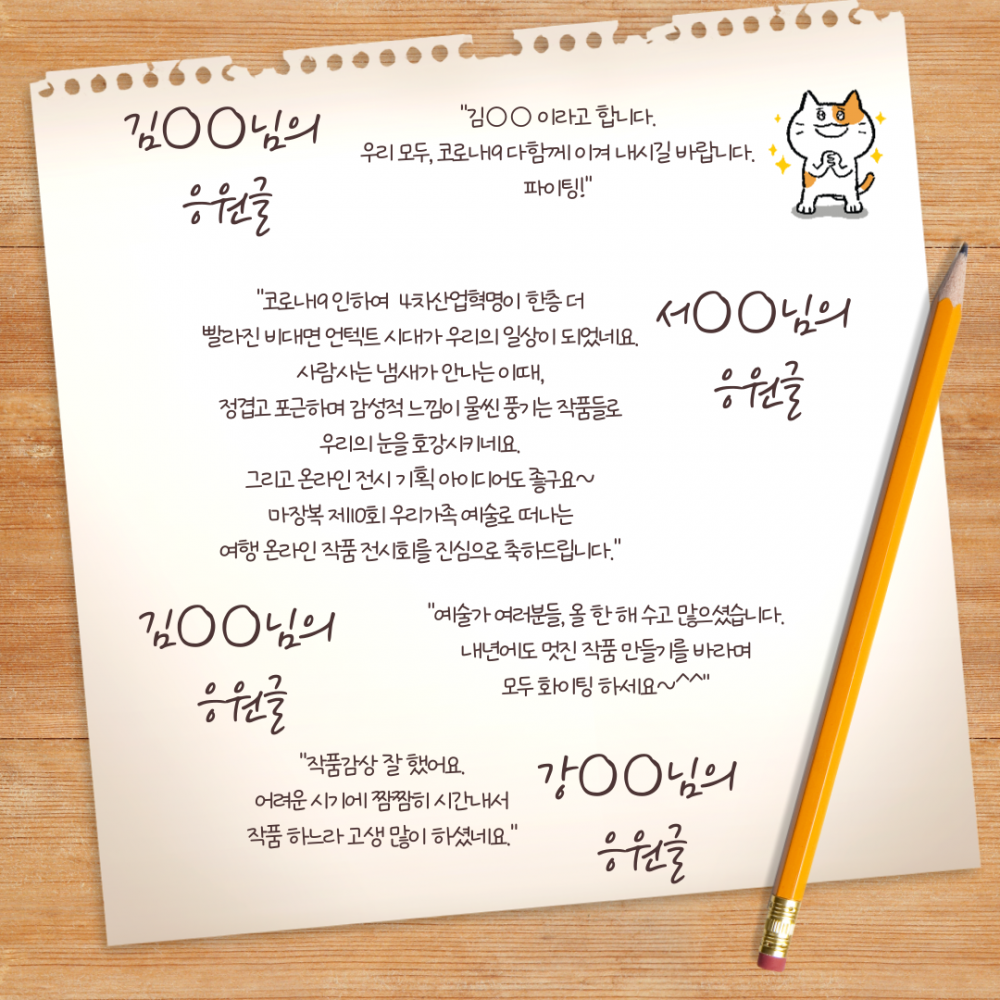 김○○님의
응원글
"김○○ 이라고 합니다.
우리 모두, 코로나19 다함께 이겨 내시길 바랍니다.
파이팅!"
"코로나19 인하여 4차산업혁명이 한층 더
빨라진 비대면 언텍트 시대가 우리의 일상이 되었네요.
사람사는 냄새가 안나는 이때,
정겹고 포근하며 감성적 느낌이 물씬 풍기는 작품들로
우리의 눈을 호강시키네요.
그리고 온라인 전시 기획 아이디어도 좋구요~
마장복 제10회 우리가족 예술로 떠나는
여행 온라인 작품 전시회를 진심으로 축하드립니다."
서○○님의
응원글
김○○님의
응원글
"예술가 여러분들, 올 한 해 수고 많으셨습니다.
내년에도 멋진 작품 만들기를 바라며
모두 화이팅 하세요~^^"
"작품감상 잘 했어요.
어려운 시기에 짬짬히 시간내서
작품 하느라 고생 많이 하셨네요."
강○○님의
응원글